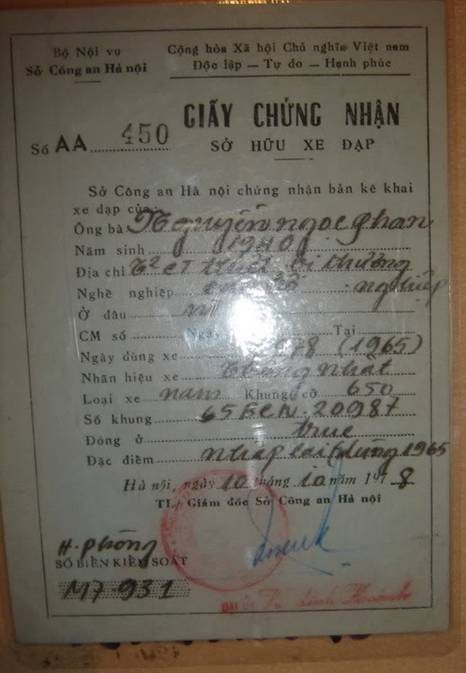 Bộ Nội vụ
Sở Công an Hà nội
Cộng hòa Xã hội Chủ nghĩa Việt nam
Độc lập — Tự do — Hạnh phúc
GIẤY CHỨNG NHẬN
SỞ HỮU XE ĐẠP
Số AA 450
Sở Công an Hà nội chứng nhận bản kê khai
xe đạp của:
Ông bà Nguyễn ngọc
Năm sinh 1940
Địa chỉ
Nghề nghiệp nghiệp
Ở đâu
CM số Ngày Tại
Ngày dùng xe 78 (1965)
Nhãn hiệu xe thống nhất
Loại xe nam Khung cỡ 650
Số khung 65ECN.20987
Đóng ở trục
Đặc điểm 1965
Hà nội, ngày 10 tháng 10 năm 1978
TL. Giám đốc Sở Công an Hà nội
H. phòng
SỐ BIỂN KIỂM SOÁT
M7-931